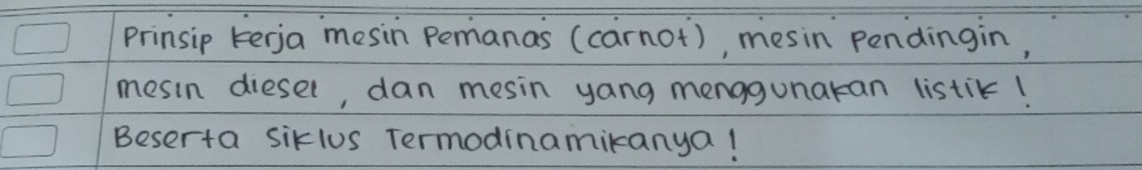 Prinsip kerja mesin Pemanas (carnot), mesin Pendingin,
mesin diesel, dan mesin yang menggunakan listik!
Beserta siklus Termodinamikanya!